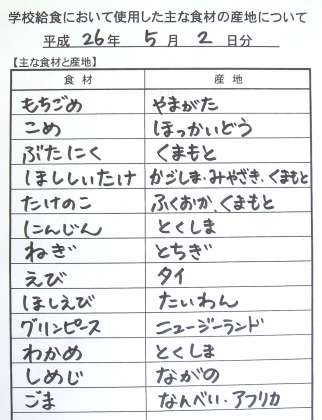 学校給食において使用した主な食材の産地について
平成 26年 5月 2日分
【主な食材と産地】
食材 産地
もちごめ やまがた
こめ ほっかいどう
ぶたにく くまもと
ほししいたけ かごしま・みやざき、くまもと
たけのこ ふくおか、くまもと
にんじん とくしま
ねぎ とちぎ
えび タイ
ほしえび たいわん
グリンピース ニュージーランド
わかめ とくしま
しめじ ながの
ごま なんべい・アフリカ